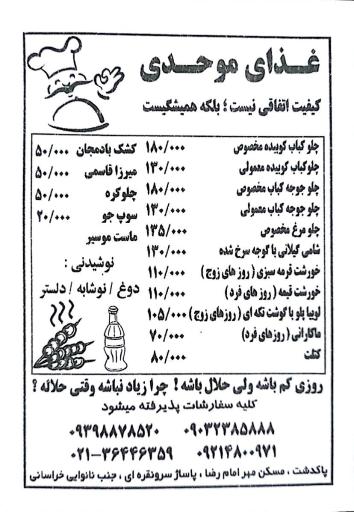 غذای موحدی
کیفیت اتفاقی نیست ؛ بلکه همیشگیست
چلو کباب کوبیده مخصوص ۱۸۰/۰۰۰
چلوکباب کوبیده معمولی ۱۳۰/۰۰۰
چلو جوجه کباب مخصوص ۱۸۰/۰۰۰
چلو جوجه کباب معمولی ۱۳۰/۰۰۰
چلو مرغ مخصوص ۱۳۵/۰۰۰
شامی گیلانی با گوجه سرخ شده ۱۳۰/۰۰۰
خورشت قرمه سبزی ( روز های زوج ) ۱۱۰/۰۰۰
خورشت قیمه ( روزهای فرد ) ۱۱۰/۰۰۰
لوبیا پلو با گوشت تکه ای (روزهای زوج) ۱۰۵/۰۰۰
ماکارانی ( روزهای فرد) ۷۰/۰۰۰
کتلت ۸۰/۰۰۰
کشک بادمجان ۵۰/۰۰۰
میرزا قاسمی ۵۰/۰۰۰
چلوکره ۵۰/۰۰۰
سوپ جو ۲۰/۰۰۰
ماست موسیر
نوشیدنی :
دوغ / نوشابه / دلستر
روزی کم باشه ولی حلال باشه ! چرا زیاد نباشه وقتی حلاله ؟
کلیه سفارشات پذیرفته میشود
۰۹۰۳۲۳۸۵۸۸۸ ۰۹۳۹۸۸۷۸۵۲۰
۰۹۲۱۴۸۰۰۹۷۱ ۰۲۱-۳۶۴۴۶۳۵۹
پاکدشت ، مسکن مهر امام رضا ، پاساژ سرونقره ای ، جنب نانوایی خراسانی